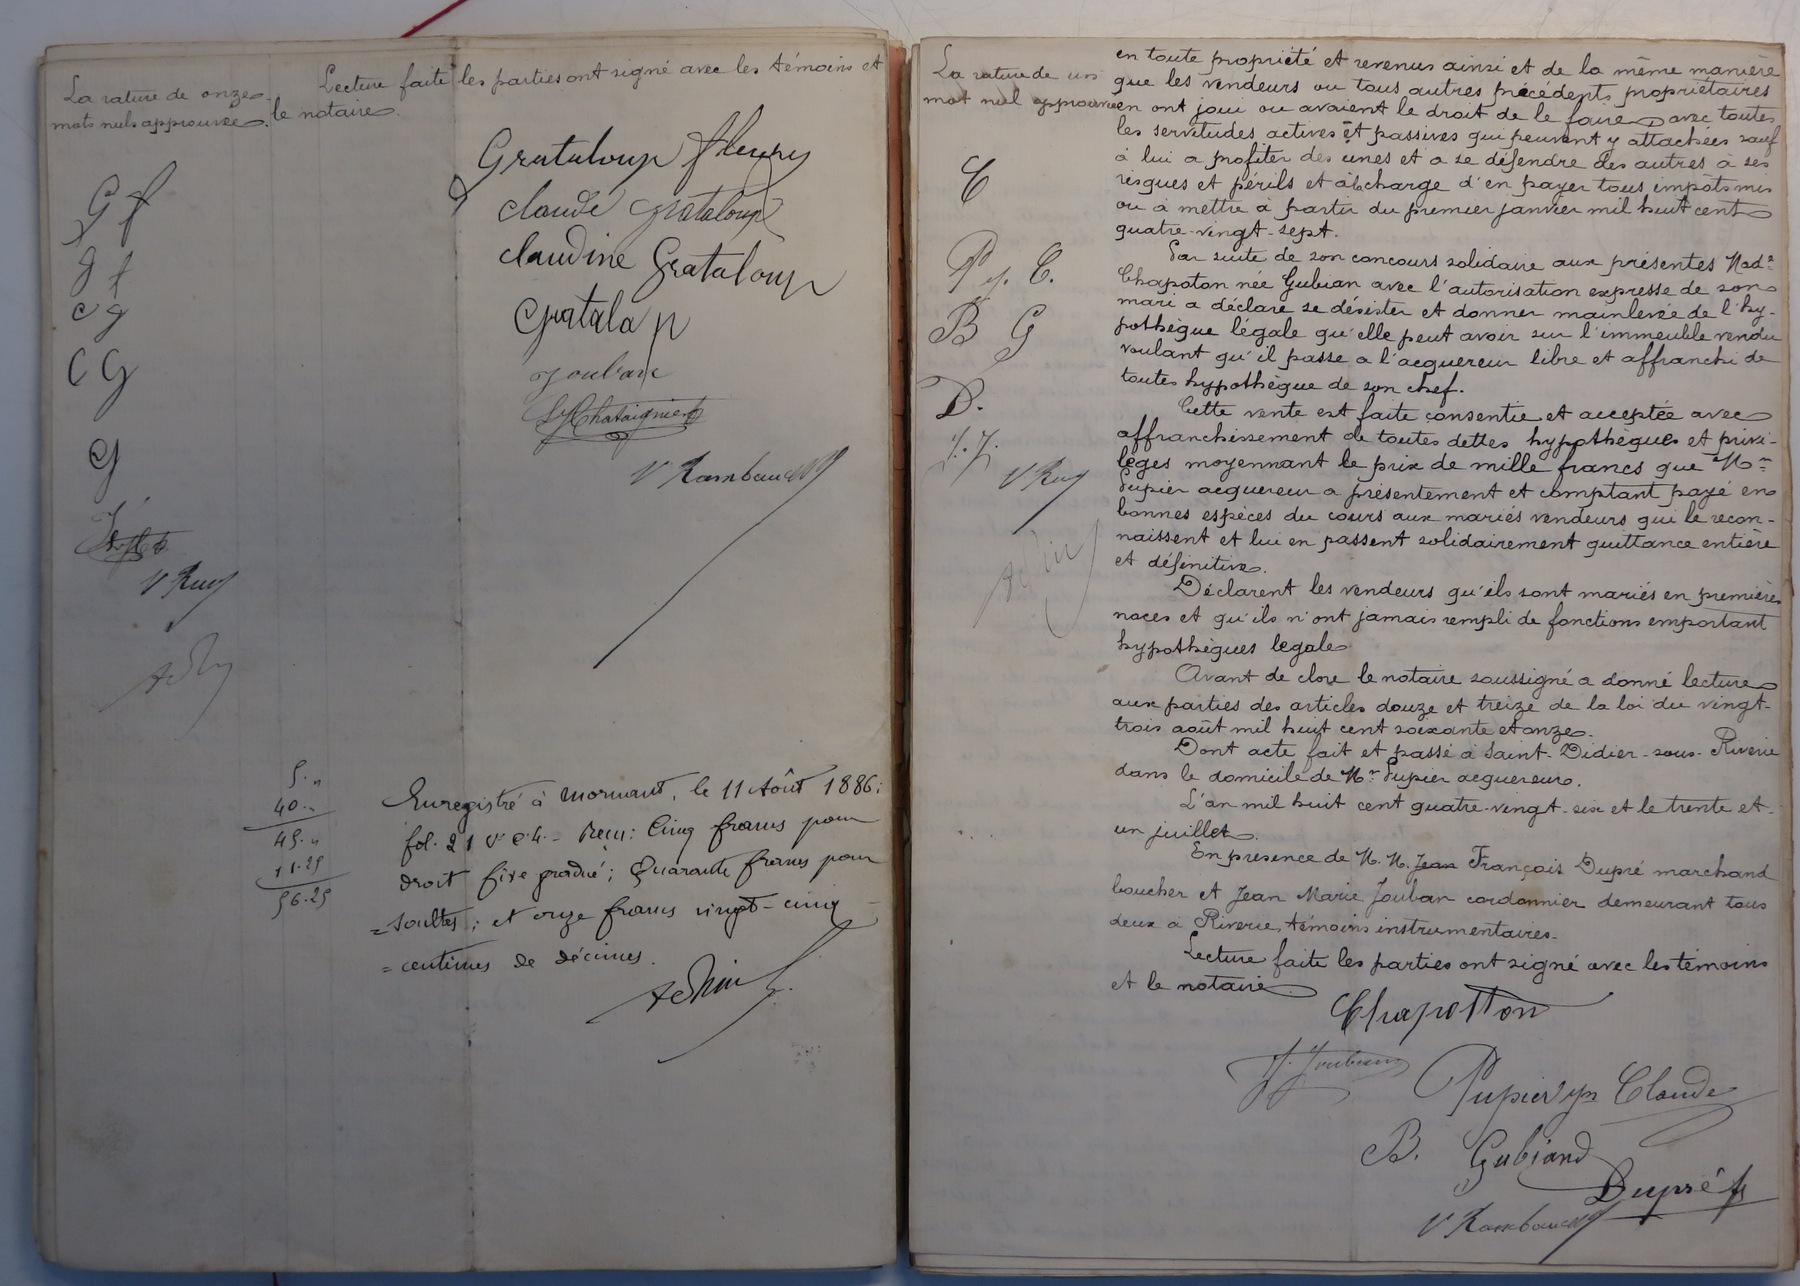 La rature de onze
mots nuls approuvée.
Lecture faite les parties ont signé avec les témoins et
le notaire.
Grataloup fleury
claude Grataloup
claudine Grataloup
Gratalap
Jouban
Chataignier
V Rambaud
G f
J f
C g
C G
G
V Ru
5. "
40. "
45. "
11.25
56.25
Enregistré à Mornant, le 11 Août 1886;
fol. 21 Vº C 4. Reçu: Cinq francs pour
droit fixe gradué; Quarante francs pour
= soultes; et onze francs vingt-cinq
= centimes de décimes.
La rature de un
mot nul approuvée
C
P. C.
B G
D.
J. J.
V Ru
en toute propriété et revenus ainsi et de la même manière
que les vendeurs ou tous autres précédents propriétaires
en ont joui ou avaient le droit de le faire, avec toutes
les servitudes actives et passives qui peuvent y attachées sauf
à lui a profiter des unes et a se défendre des autres à ses
risques et périls et à la charge d'en payer tous impôts mis
ou à mettre à partir du premier janvier mil huit cent
quatre-vingt-sept.
Par suite de son concours solidaire aux présentes Made
Chapoton née Gubian avec l'autorisation expresse de son
mari a déclaré se désister et donner mainlevée de l'hy-
pothèque légale qu'elle peut avoir sur l'immeuble vendu
voulant qu'il passe a l'acquereur libre et affranchi de
toutes hypothèque de son chef.
Cette vente est faite consentie et acceptée avec
affranchissement de toutes dettes hypothèques et privi-
lèges moyennant le prix de mille francs que Mr
Pupier acquereur a présentement et comptant payé en
bonnes espèces du cours aux mariés vendeurs qui le recon-
naissent et lui en passent solidairement quittance entière
et définitive.
Déclarent les vendeurs qu'ils sont mariés en premières
noces et qu'ils n'ont jamais rempli de fonctions emportant
hypothèques legales
Avant de clore le notaire soussigné a donné lecture
aux parties des articles douze et treize de la loi du vingt-
trois août mil huit cent soixante et onze.
Dont acte fait et passé à Saint-Didier-sous-Riverie
dans le domicile de Mr Pupier acquereur.
L'an mil huit cent quatre-vingt-six et le trente et
un juillet.
En présence de M. M. Jean François Dupré marchand
boucher et Jean Marie Jouban cordonnier demeurant tous
deux à Riverie, témoins instrumentaires.
Lecture faite les parties ont signé avec les témoins
et le notaire
Chapotton
J. Joubian
Pupier Claude
B. Gubiand
Dupré
V Rambaud